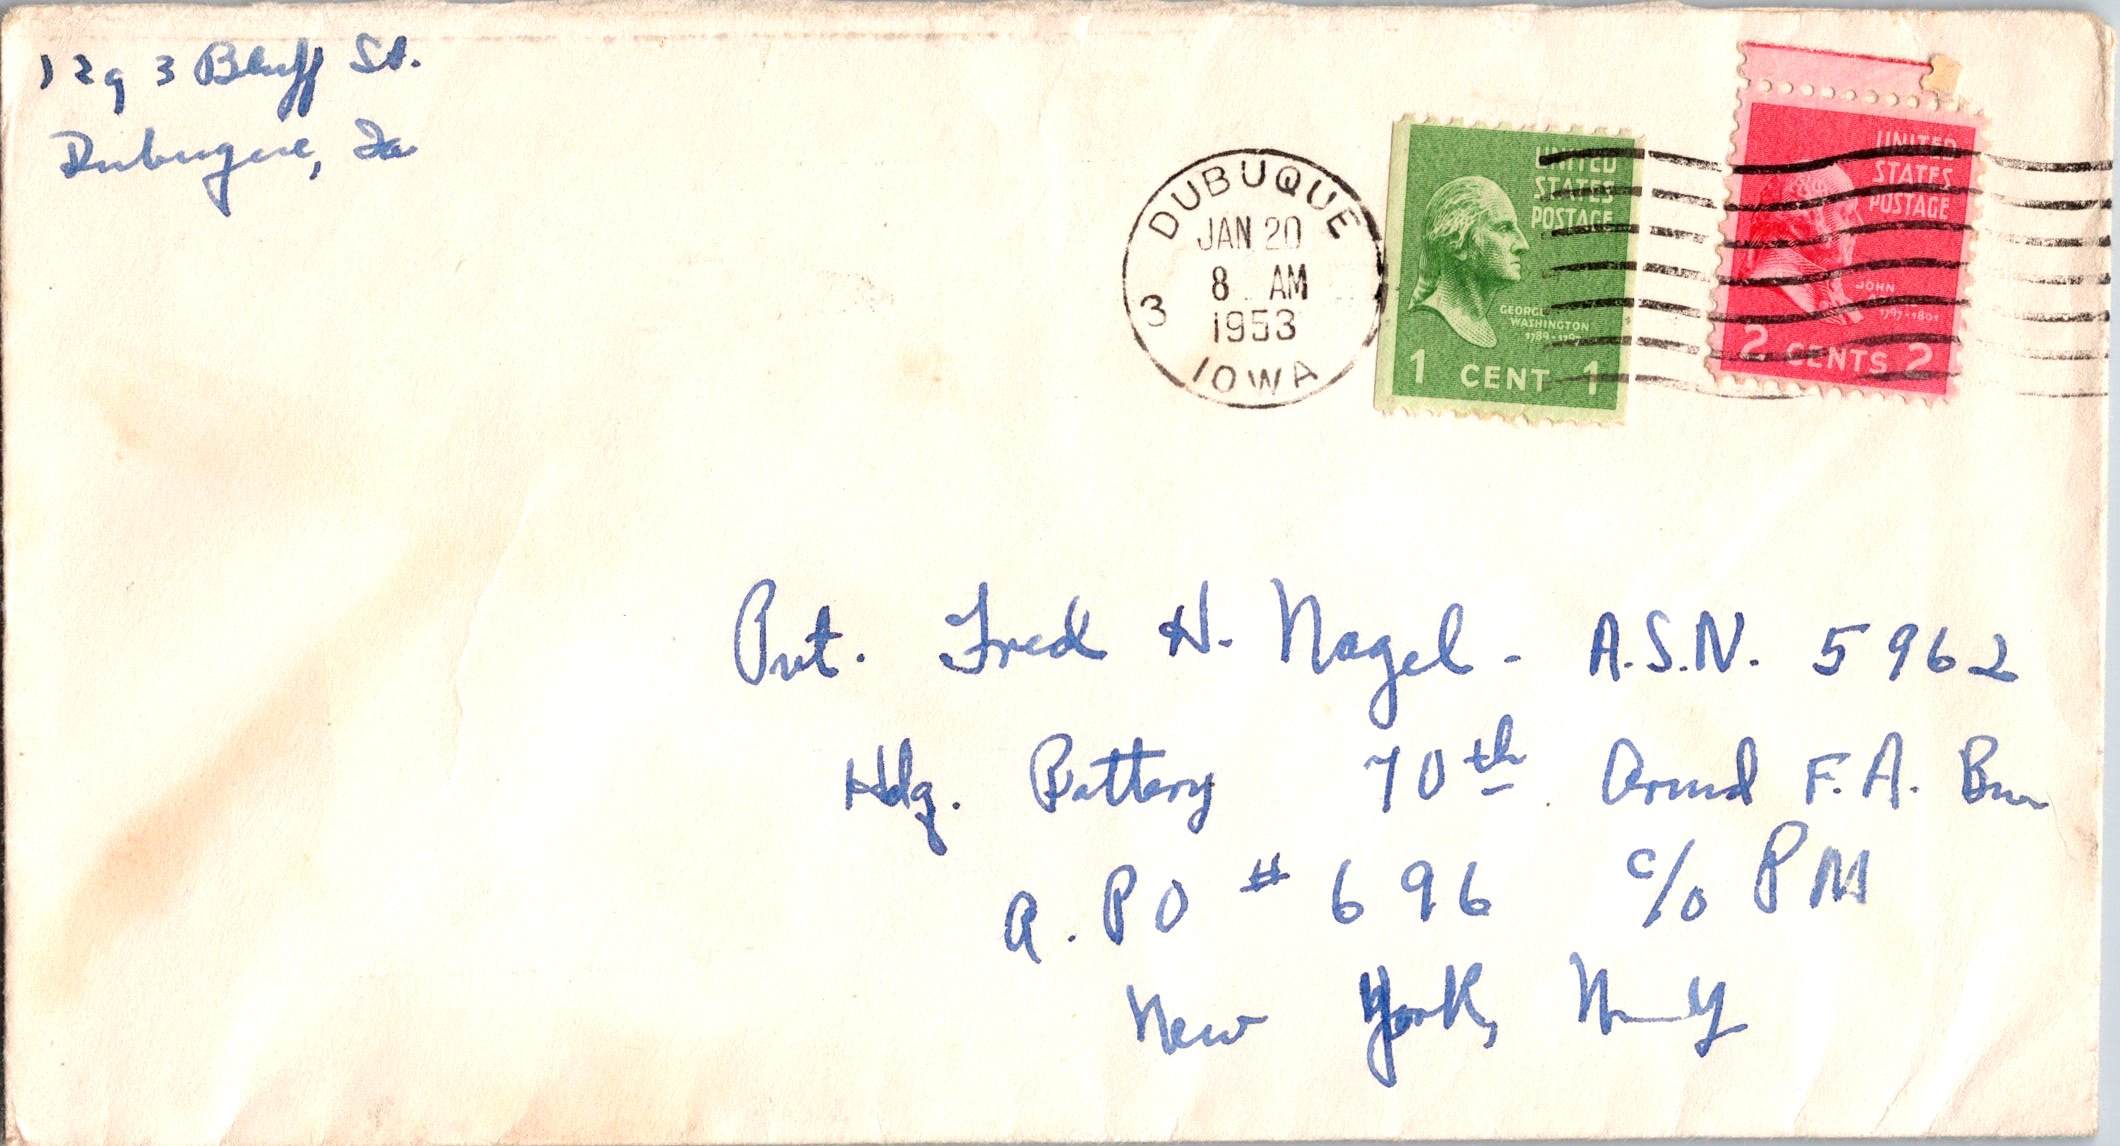 1293 Bluff St.
Dubuque, Ia
DUBUQUE
JAN 20
8 AM
1953
3
IOWA
UNITED
STATES
POSTAGE
GEORGE
WASHINGTON
1789-1797
1 CENT 1
UNITED
STATES
POSTAGE
JOHN
1797-1801
2 CENTS 2
Pvt. Fred H. Nagel - A.S.N. 5962
Hdq. Battery 70th Armd F.A. Bn
A.PO # 696 c/o PM
New York, N-Y